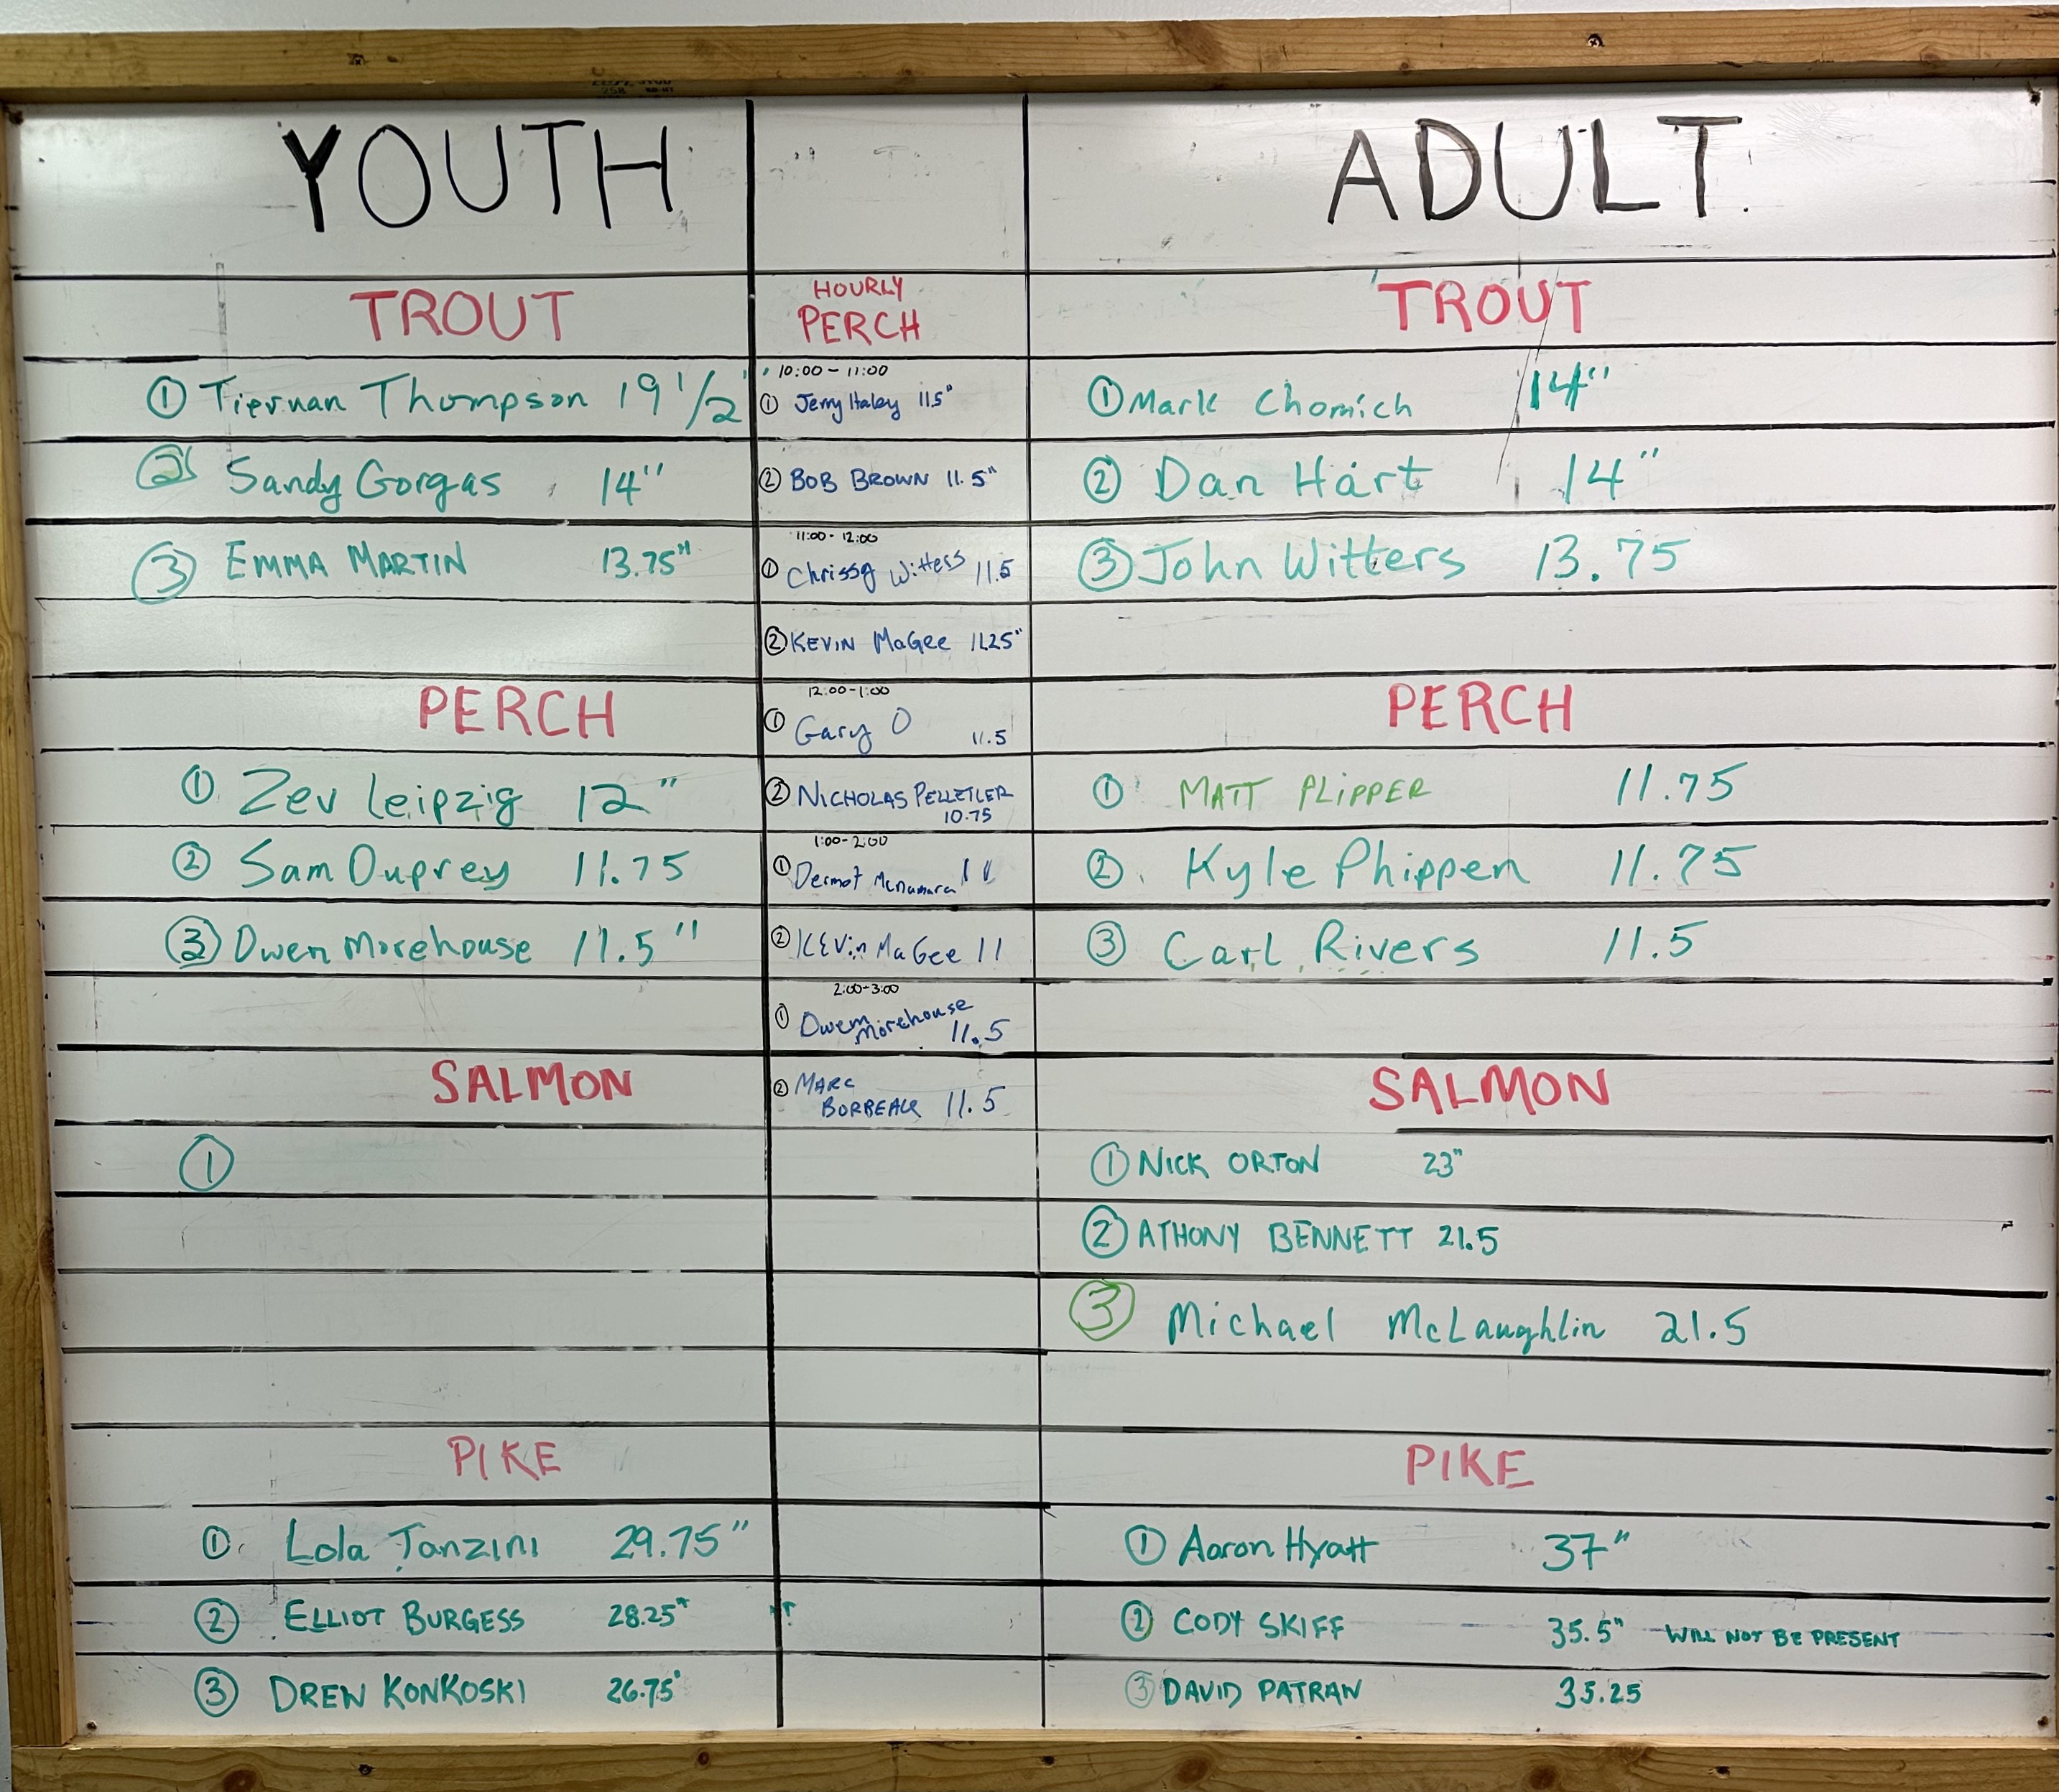 YOUTH
TROUT
① Tiernan Thompson 19 1/2"
② Sandy Gorgas 14"
③ EMMA MARTIN 13.75"
PERCH
① Zev Leipzig 12"
② Sam Duprey 11.75
③ Owen Morehouse 11.5"
SALMON
①
PIKE
① Lola Tanzini 29.75"
② ELLIOT BURGESS 28.25"
③ DREW KONKOSKI 26.75"
HOURLY
PERCH
10:00 - 11:00
① Jerry Haley 11.5"
② BOB BROWN 11.5"
11:00 - 12:00
① Chrissy Witters 11.5
② KEVIN MaGee 11.25"
12:00-1:00
① Gary O
11.5
② NICHOLAS PELLETIER
10.75
1:00-2:00
① Dermot Mcnamara 11
② KEVin MaGee 11
2:00-3:00
① Owen
Morehouse
11.5
② MARC
BORBEAU 11.5
ADULT
TROUT
① Mark Chomich 14"
② Dan Hart 14"
③ John Witters 13.75
PERCH
① MATT PLIPPER 11.75
② Kyle Phippen 11.75
③ Carl Rivers 11.5
SALMON
① NICK ORTON 23"
② ATHONY BENNETT 21.5
③ Michael McLaughlin 21.5
PIKE
① Aaron Hyatt 37"
② CODY SKIFF 35.5" WILL NOT BE PRESENT
③ DAVID PATRAN 35.25